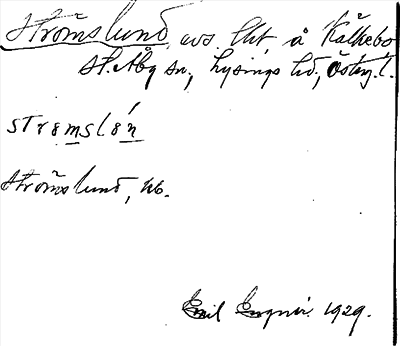 Strömslund, avs. lht å Kålkebo
St. Åby sn, Lysings hd, Österg. l.
strömslún
Strömslund, kb.
Emil 1929.